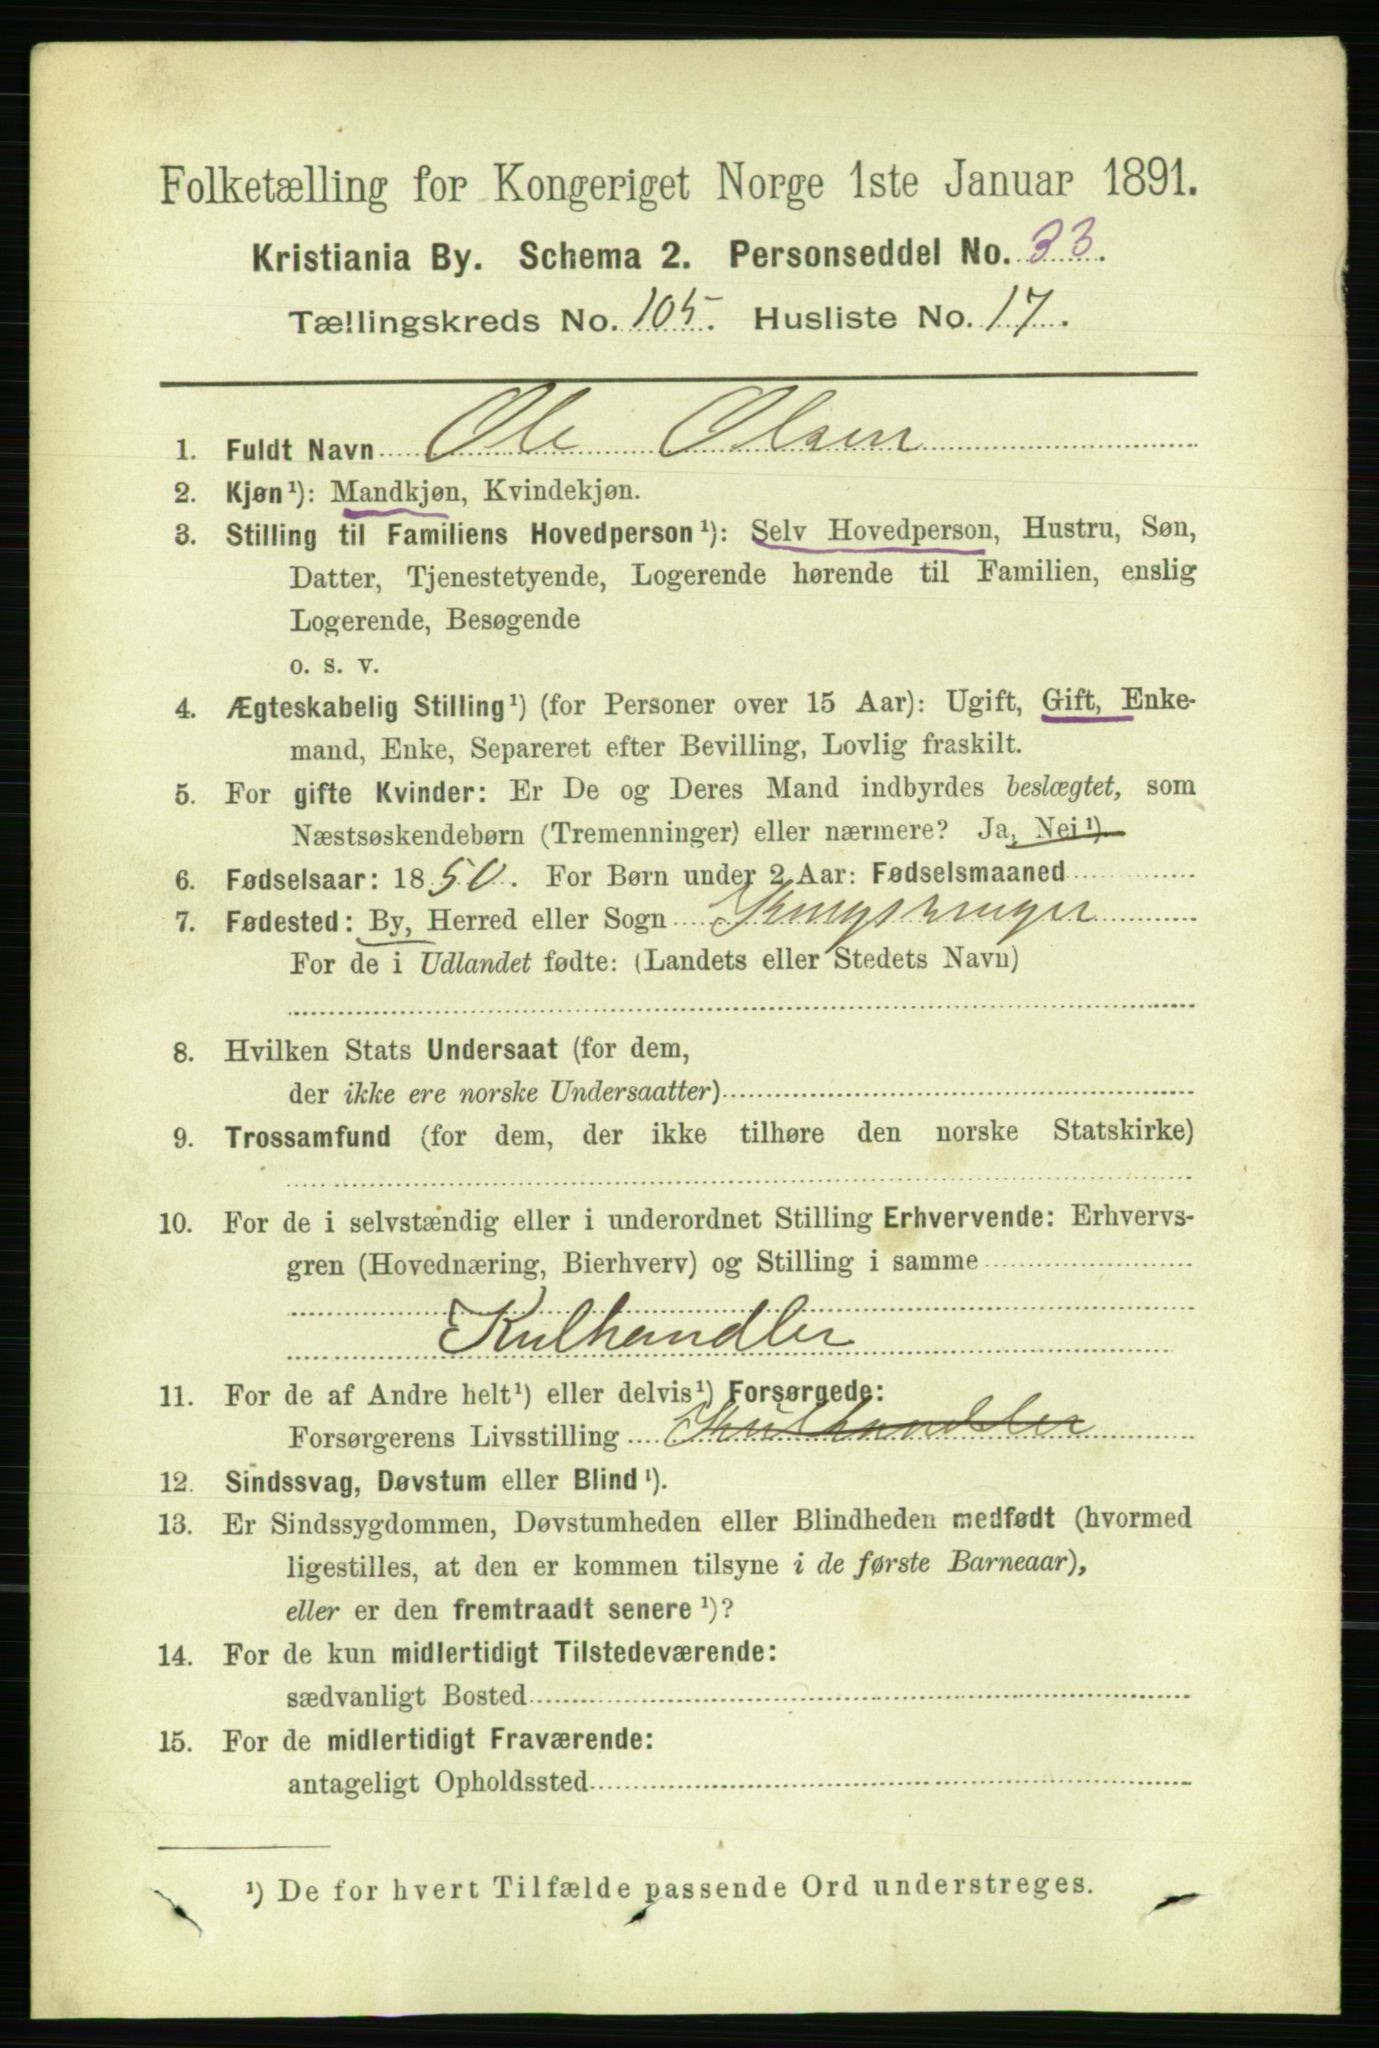 Folketælling for Kongeriget Norge 1ste Januar 1891.
Kristiania By. Schema 2. Personseddel No. 33.
Tællingskreds No. 105. Husliste No. 17.
1. Fuldt Navn Ole Olsen
2. Kjøn¹): Mandkjøn, Kvindekjøn.
3. Stilling til Familiens Hovedperson¹): Selv Hovedperson, Hustru, Søn,
Datter, Tjenestetyende, Logerende hørende til Familien, enslig
Logerende, Besøgende
o. s. v.
4. Ægteskabelig Stilling¹) (for Personer over 15 Aar): Ugift, Gift, Enke-
mand, Enke, Separeret efter Bevilling, Lovlig fraskilt.
5. For gifte Kvinder: Er De og Deres Mand indbyrdes beslægtet, som
Næstsøskendebørn (Tremenninger) eller nærmere? Ja, Nei¹)
6. Fødselsaar: 1850. For Børn under 2 Aar: Fødselsmaaned
7. Fødested: By, Herred eller Sogn Kongsvinger
For de i Udlandet fødte: (Landets eller Stedets Navn)
8. Hvilken Stats Undersaat (for dem,
der ikke ere norske Undersaatter)
9. Trossamfund (for dem, der ikke tilhøre den norske Statskirke)
10. For de i selvstændig eller i underordnet Stilling Erhvervende: Erhvervs-
gren (Hovednæring, Bierhverv) og Stilling i samme
Kulhandler
11. For de af Andre helt¹) eller delvis¹) Forsørgede:
Forsørgerens Livsstilling Kulhandler
12. Sindssvag, Døvstum eller Blind¹).
13. Er Sindssygdommen, Døvstumheden eller Blindheden medfødt (hvormed
ligestilles, at den er kommen tilsyne i de første Barneaar),
eller er den fremtraadt senere¹)?
14. For de kun midlertidigt Tilstedeværende:
sædvanligt Bosted
15. For de midlertidigt Fraværende:
antageligt Opholdssted
¹) De for hvert Tilfælde passende Ord understreges.